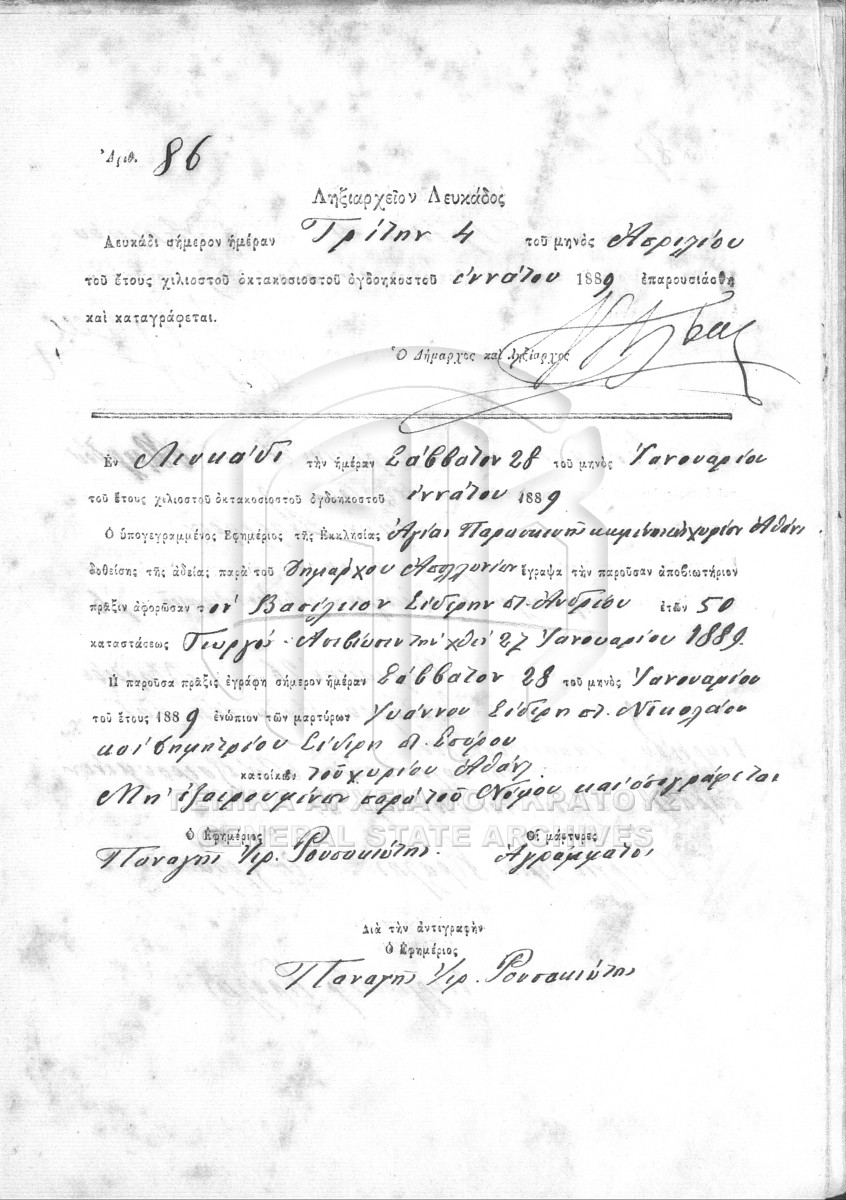 Ἀριθ. 86
Ληξιαρχεῖον Λευκάδος
Λευκάδι σήμερον ἡμέραν Τρίτην 4 τοῦ μηνὸς Ἀπριλίου
τοῦ ἔτους χιλιοστοῦ ὀκτακοσιοστοῦ ὀγδοηκοστοῦ ἐννάτου 1889 ἐπαρουσιάσθη
καὶ καταγράφεται.
Ὁ Δήμαρχος καὶ Ληξίαρχος
Ἐν Λευκάδι τὴν ἡμέραν Σάββατον 28 τοῦ μηνὸς Ἰανουαρίου
τοῦ ἔτους χιλιοστοῦ ὀκτακοσιοστοῦ ὀγδοηκοστοῦ ἐννάτου 1889
Ὁ ὑπογεγραμμένος Ἐφημέριος τῆς Ἐκκλησίας Ἁγίας Παρασκευῆς Ἀθάνι
δοθείσης τῆς ἀδείας παρὰ τοῦ Δημάρχου Ἀπολλωνίων ἔγραψα τὴν παροῦσαν ἀποβιωτήριον
πρᾶξιν ἀφορῶσαν τον Βασίλειον Σίδερην Ἀνδρέου ἐτῶν 50
καταστάσεως Γεωργός - Ἀπεβίωσεν τὴν χθὲς 27 Ἰανουαρίου 1889.
Ἡ παροῦσα πρᾶξις ἐγράφη σήμερον ἡμέραν Σάββατον 28 τοῦ μηνὸς Ἰανουαρίου
τοῦ ἔτους 1889 ἐνώπιον τῶν μαρτύρων Ἰωάννου Σίδερη Νικολάου
καὶ Δημητρίου Σίδερη Σπύρου
κατοίκων τοῦ χωρίου Ἀθάνι
Μὴ ἐξαιρουμένων παρὰ τοῦ Νόμου
ΓΕΝΙΚΑ ΑΡΧΕΙΑ ΤΟΥ ΚΡΑΤΟΥΣ
GENERAL STATE ARCHIVES
Ὁ Ἐφημέριος Οἱ μάρτυρες
Παναγῆς Ἱερ. Ρουσακιώτης. Ἀγράμματοι
Διὰ τὴν ἀντιγραφὴν
Ὁ Ἐφημέριος
Παναγῆς Ἱερ. Ρουσακιώτης